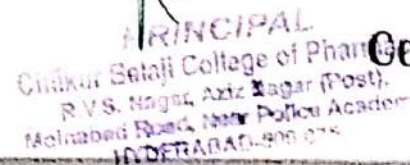 PRINCIPAL
Chilkur Balaji College of Pharm Ce
R.V.S. Nagar, Aziz Nagar (Post),
Moinabad Road, Near Police Academ
HYDERABAD-500 075